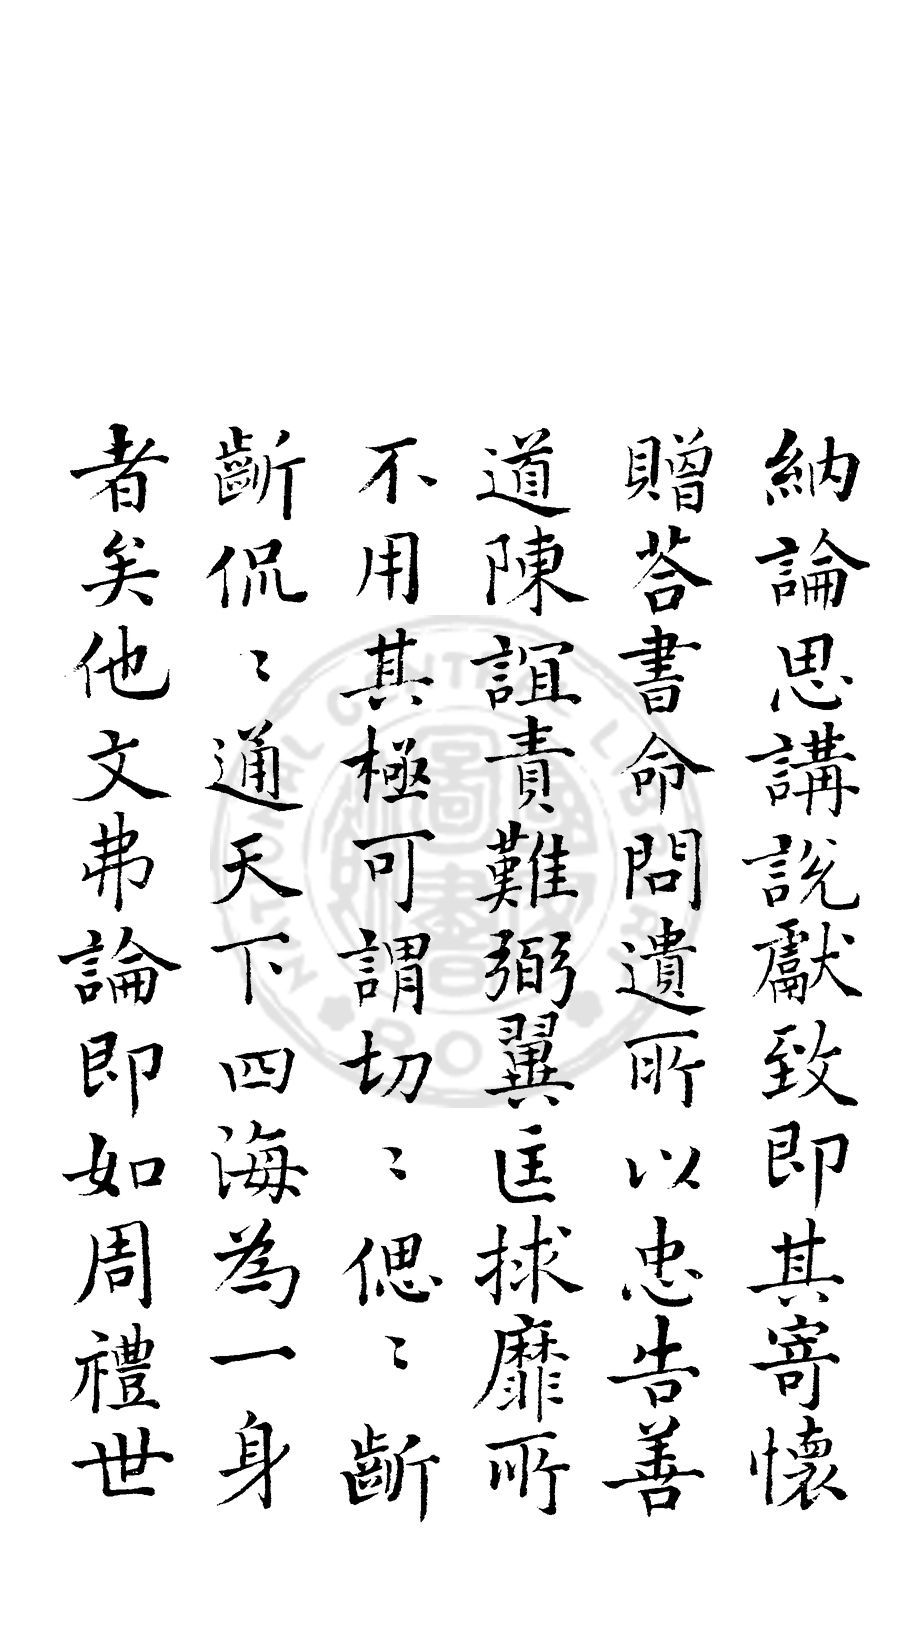 納論思講説獻致即其寄懷
贈荅書命問遺所以忠告善
道陳誼責難弼翼匡捄靡所
不用其極可謂切〻偲〻齗
齗侃〻通天下四海為一身
者矣他文弗論即如周禮世
圖書
NATIONAL CENTRAL LIBRARY